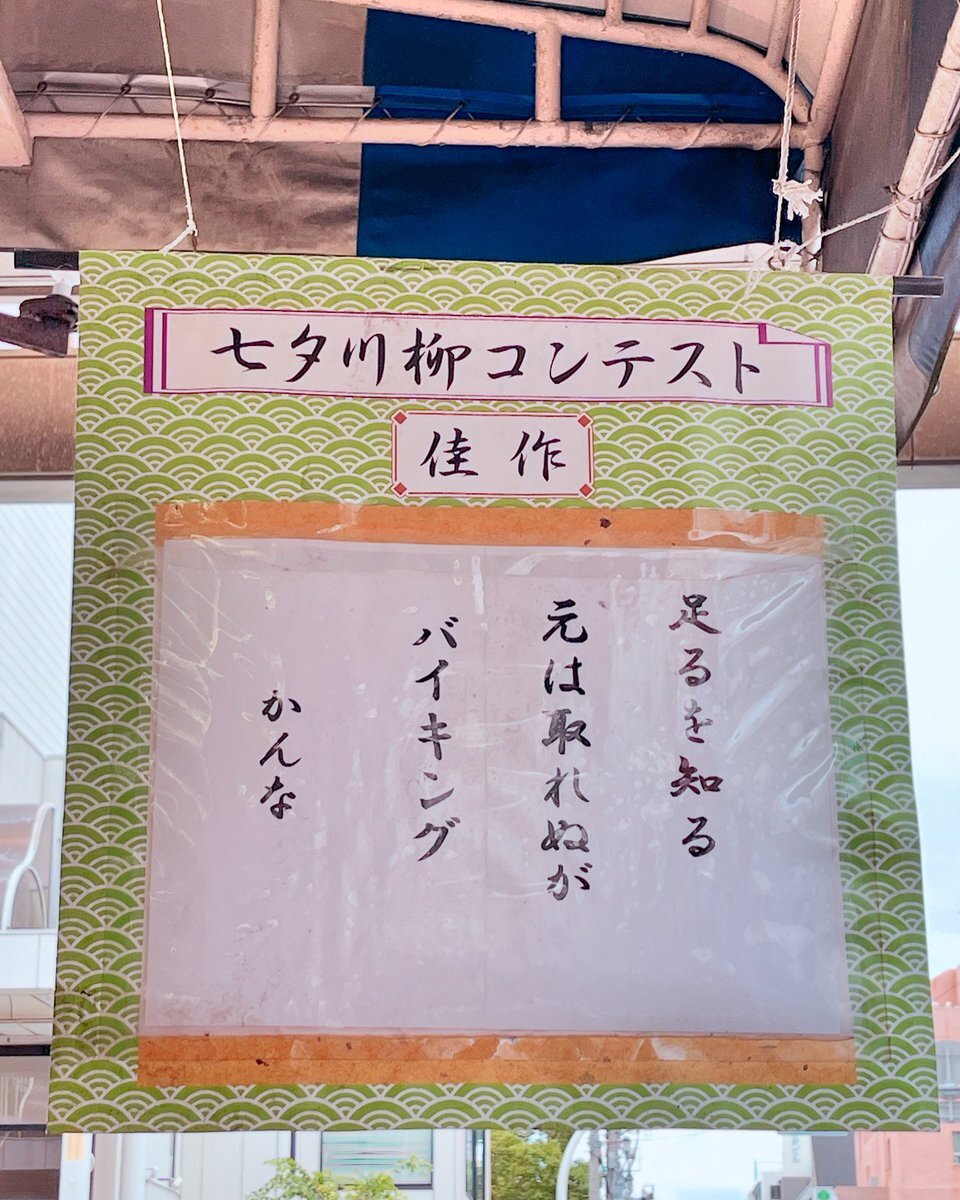 七夕川柳コンテスト
佳作
足るを知る
元は取れぬが
バイキング
かんな